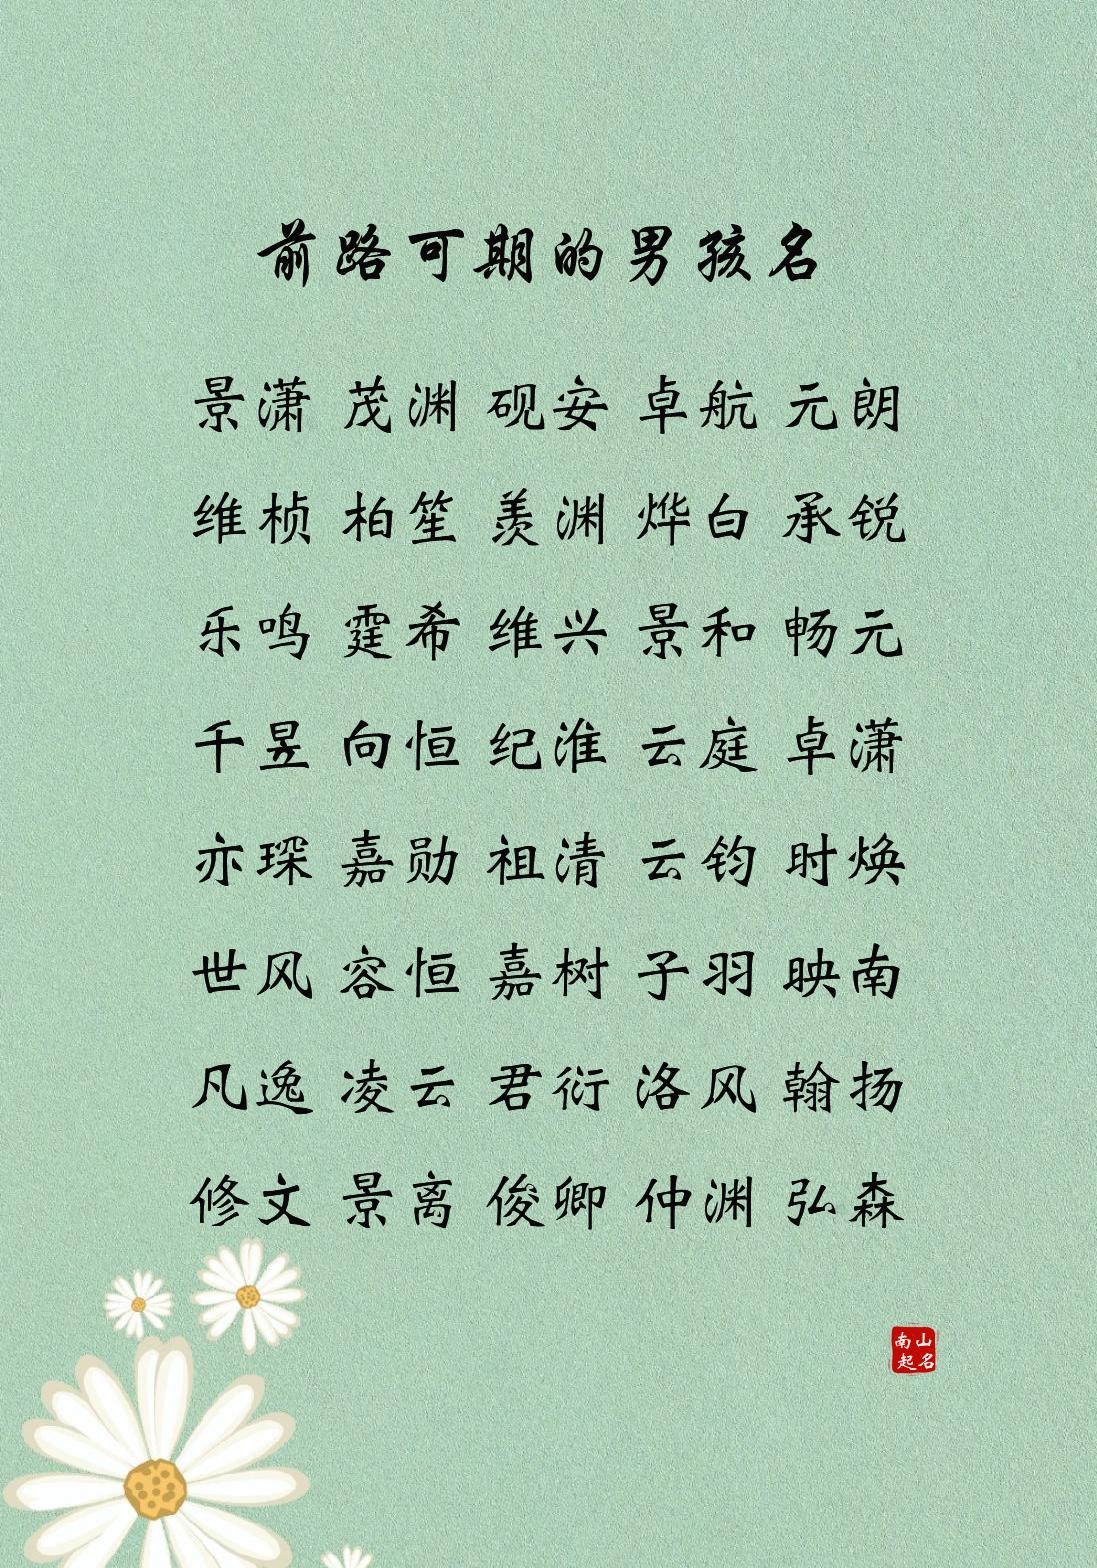 前路可期的男孩名
景潇 茂渊 砚安 卓航 元朗
维桢 柏笙 羡渊 烨白 承锐
乐鸣 霆希 维兴 景和 畅元
千昱 向恒 纪淮 云庭 卓潇
亦琛 嘉勋 祖清 云钧 时焕
世风 容恒 嘉树 子羽 映南
凡逸 凌云 君衍 洛风 翰扬
修文 景离 俊卿 仲渊 弘森
南山
起名